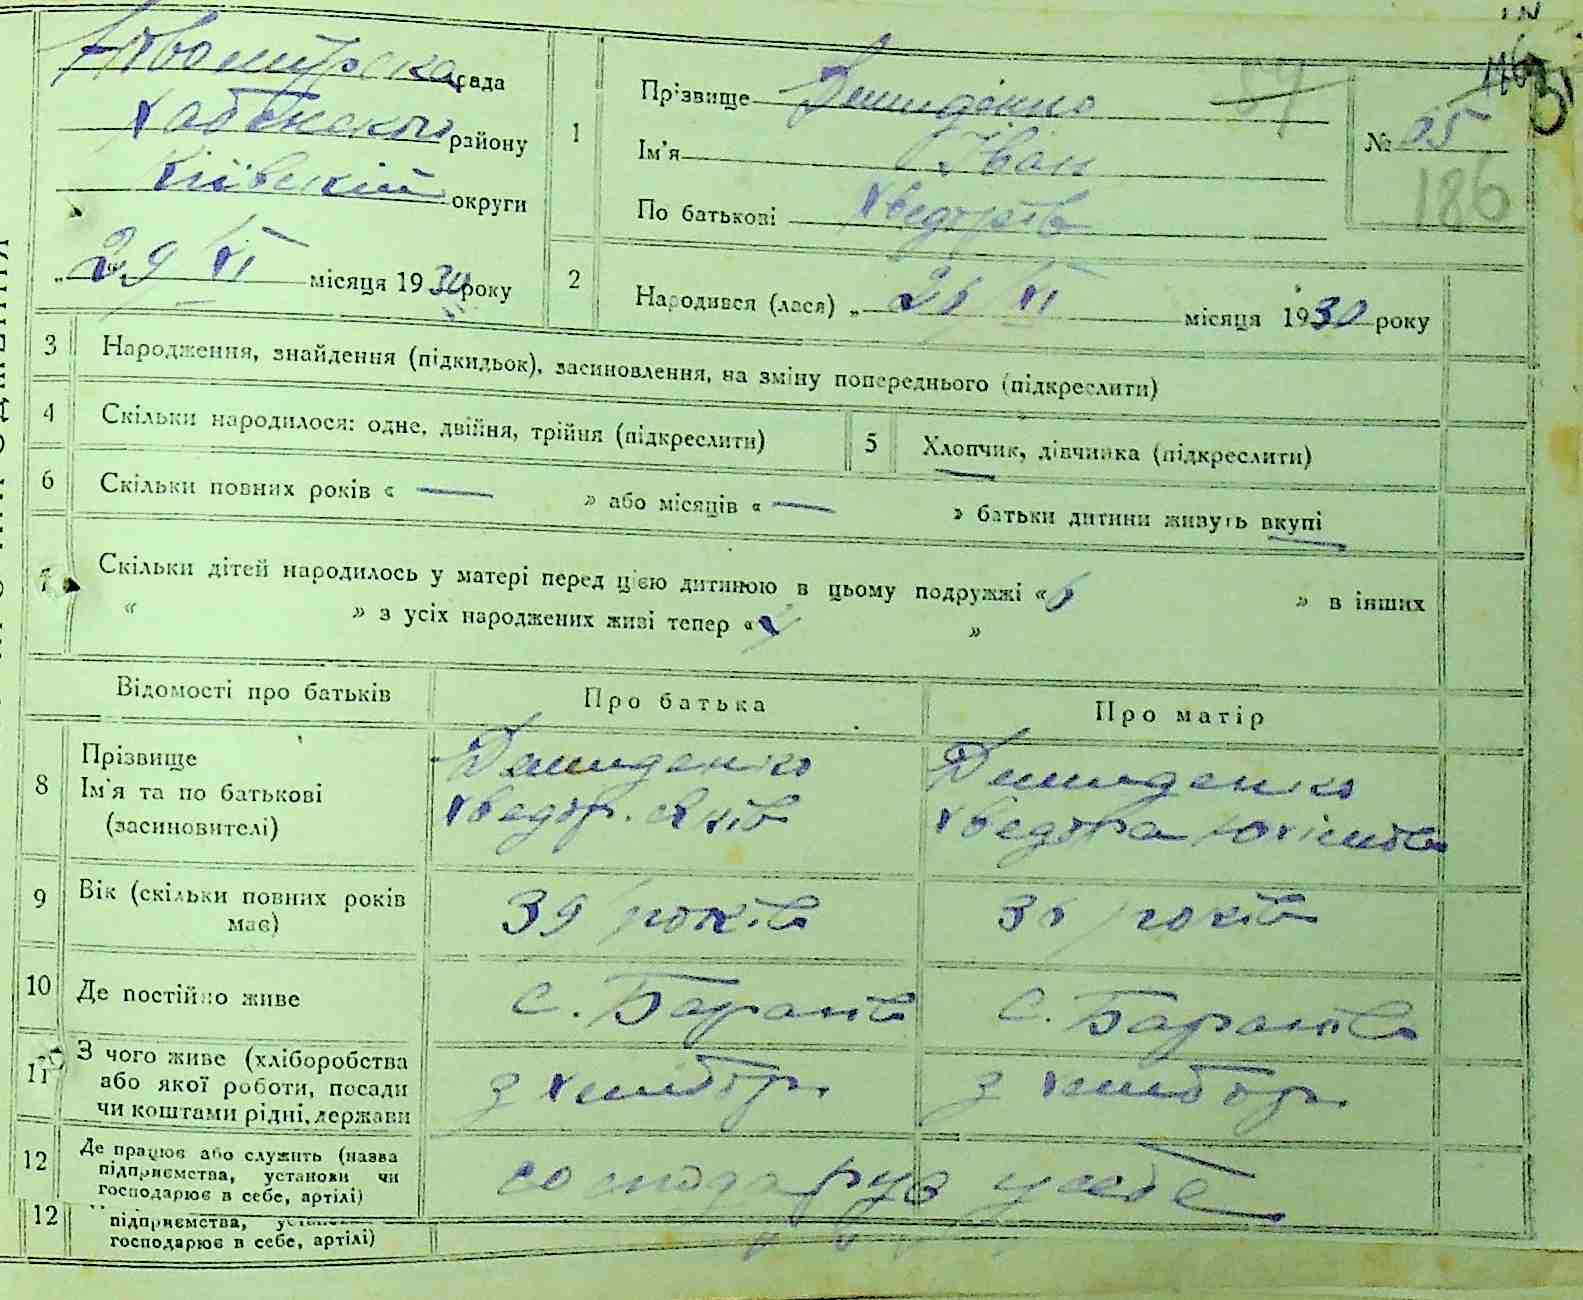 Новомирська рада
Хабенського району
Київській округи
„ 29/VI місяця 1930 року
1
Прізвище Демиденко
Ім'я Іван
По батькові Хведорів
№ 95
186
2
Народився (лася) „ 26/VI місяця 1930 року
3 Народження, знайдення (підкидьок), засиновлення, на зміну попереднього (підкреслити)
4 Скільки народилося: одне, двійня, трійня (підкреслити)
5 Хлопчик, дівчинка (підкреслити)
6 Скільки повних років « — » або місяців « — » батьки дитини живуть вкупі
7 Скільки дітей народилось у матері перед цією дитиною в цьому подружжі « 6 » в інших
“ » з усіх народжених живі тепер « »
Відомості про батьків Про батька Про матір
8 Прізвище
Ім'я та по батькові
(засиновителі)
Демиденко
Хведор
Демиденко
Хведора
9 Вік (скільки повних років
має)
39 років
36 років
10 Де постійно живе
с. Баранів
с. Баранів
11 З чого живе (хліборобства
або якої роботи, посади
чи коштами рідні, держави
з хлібор.
з хлібор.
12 Де працює або служить (назва
підприємства, установи чи
господарює в себе, артілі)
господарує у себе
12
підприємства,
господарює в себе, артілі)